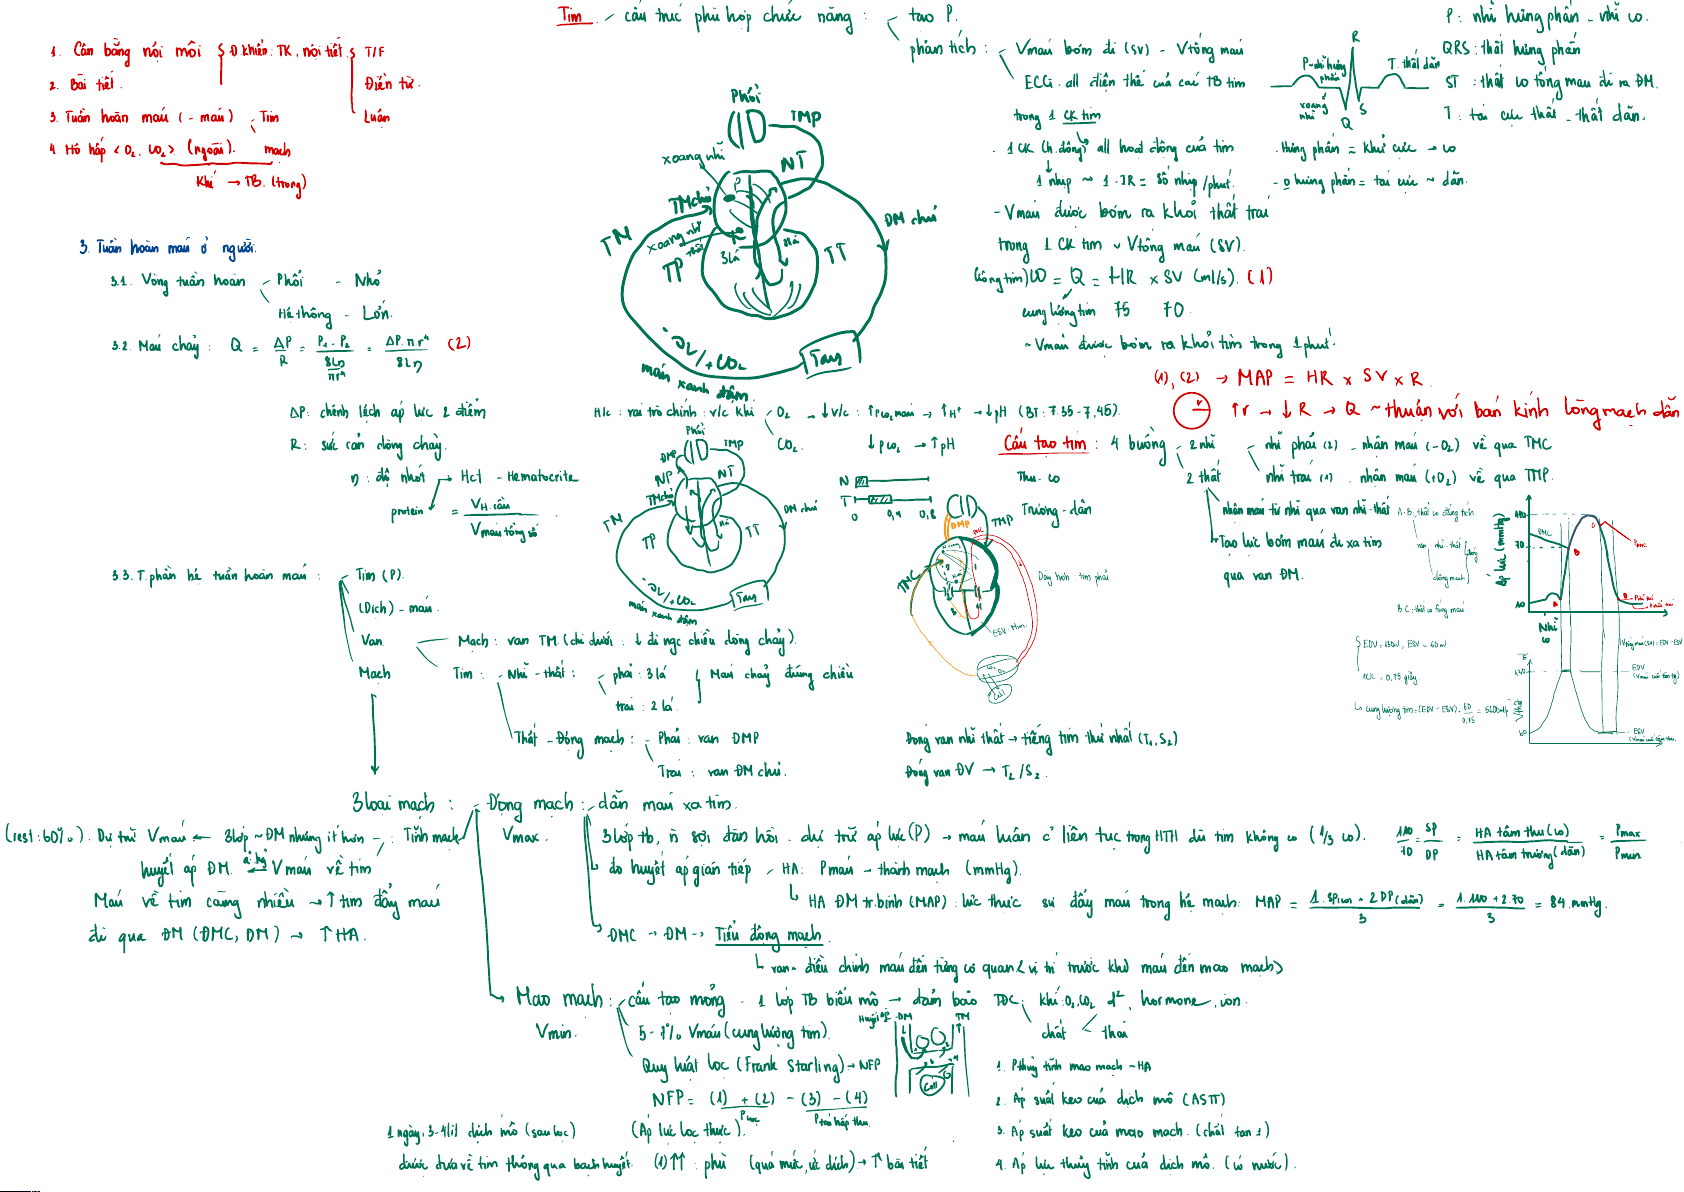 Tim - cấu trúc phù hợp chức năng : - tạo P.
phân tích : - Vmáu bơm đi (SV) - Vtống máu
ECG. all điện thế của các TB tim
trong 1 CK tim
. 1 CK (h.động) all hoạt động của tim
1 nhịp ~ 1 . HR = số nhịp /phút.
- Vmáu được bơm ra khỏi thất trái
trong 1 CK tim ~ Vtống máu (SV).
(công tim) CO = Q = HR x SV (ml/s). (1)
cung lượng tim 75 70
~ Vmáu được bơm ra khỏi tim trong 1 phút.
(1), (2) → MAP = HR x SV x R.
r ↑r → ↓R → Q ~ thuận với bán kính lòng mạch dẫn
P : nhĩ hưng phấn - nhĩ co.
QRS : thất hưng phấn
ST : thất co tống máu đi ra ĐM.
T : tái cực thất - thất dãn.
R
P~nhĩ hưng phấn
T. thất dãn
xoang nhĩ
Q
S
. hưng phấn = khử cực → co
- o hưng phấn = tái cực ~ dãn.
1. Cân bằng nội môi
Đ.khiển: TK, nội tiết
T/F
Điền từ.
Luận
2. Bài tiết.
3. Tuần hoàn máu (- máu) - Tim
mạch
4. Hô hấp < O2, CO2 > (ngoài).
Khí → TB. (trong)
3. Tuần hoàn máu ở người.
3.1. Vòng tuần hoàn - Phổi - Nhỏ
Hệ thống - Lớn.
3.2. Máu chảy : Q = ΔP/R = (P1 - P2)/(8Lη/πr⁴) = ΔP.πr⁴/8Lη (2)
ΔP: chênh lệch áp lực 2 điểm
R: sức cản dòng chảy.
η : độ nhớt → Hct - Hematocrite
protein = VH.cầu / Vmáu tổng số
3.3. T.phần hệ tuần hoàn máu : - Tim (P).
(Dịch) - máu.
Van
Mạch : van TM (chi dưới : ↓ đi ngc chiều dòng chảy).
Tim : - Nhĩ - thất : - phải : 3 lá
trái : 2 lá.
Máu chảy đúng chiều
Thất - Động mạch : - Phải : van ĐMP
Trái : van ĐM chủ.
Mạch
Phổi
TMP
xoang nhĩ
NT
P
TM chủ
TM
xoang nhĩ thất
TP
3 lá
TT
ĐM chủ
- O2/+CO2
máu xanh đậm
Tạng
H/c : vai trò chính : v/c khí - O2 → ↓v/c : ↑PCO2 máu → ↑H⁺ → ↓pH (BT : 7.35 - 7,45).
CO2. ↓PCO2 → ↑pH
Phổi
ĐMP
TMP
NP
NT
TM chủ
TM
TP
TT
ĐM chủ
- O2/+CO2
máu xanh đậm
Tạng
Cấu tạo tim : 4 buồng - 2 nhĩ
2 thất
nhĩ phải (2) - nhận máu (-O2) về qua TMC
nhĩ trái (1) . nhận máu (+O2) về qua TMP.
nhận máu từ nhĩ qua van nhĩ-thất
Tạo lực bơm máu đi xa tim
qua van ĐM.
Thu - co
Trương - dãn
N
T
0 0,4 0,8
ĐMP
TMP
TMC
Dày hơn : tim phải
Cell
A-B: thất co đẳng tích
van nhĩ - thất
động mạch
đóng
B-C : thất co tống máu
Áp lực (mmHg)
ĐMC
110
70
10
Nhĩ co
EDV = 130ml, ESV = 60ml
1CK = 0,75 giây
cung lượng tim = (EDV - ESV). 60/0,75 = 5600ml/p
Vtống máu (SV) = EDV - ESV
130
60
Vthất
EDV
ESV
Đóng van nhĩ thất → tiếng tim thứ nhất (T1, S2)
Đóng van ĐV → T2 / S2.
3 loại mạch : - Động mạch : - dẫn máu xa tim.
Vmax.
3 lớp tb, n sợi đàn hồi - dự trữ áp lực (P) → máu luân c' liên tục trong HTH dù tim không co (1/3 co).
110/70 = SP/DP = HA tâm thu (co) / HA tâm trương (dãn) = Pmax/Pmin
đo huyết áp gián tiếp - HA: Pmáu - thành mạch (mmHg).
HA ĐM tr.bình (MAP) : lực thực sự đẩy máu trong hệ mạch: MAP = (1.SP(co) + 2DP(dãn))/3 = (1.110 + 2.70)/3 = 84 mmHg.
ĐMC → ĐM → Tiểu động mạch
van - điều chỉnh máu đến từng cơ quan < vị trí trước khi máu đến mao mạch >
(rest : 60%). Dự trữ Vmáu ← 3 lớp ~ ĐM nhưng ít hơn - : Tĩnh mạch
huyết áp ĐM. ← Vmáu về tim
Máu về tim càng nhiều → ↑ tim đẩy máu
đi qua ĐM (ĐMC, ĐM) → ↑HA.
Mao mạch : - cấu tạo mỏng - 1 lớp TB biểu mô → đảm bảo TĐC : khí : O2, CO2 d², hormone, ion.
chất thải
Vmin.
5 - 7% Vmáu (cung lượng tim).
Quy luật lọc (Frank Starling) → NFP
NFP = (1) + (2) - (3) - (4)
Plọc Ptái hấp thu
(Áp lực lọc thực).
ĐM
TM
Cell
1. Pthủy tĩnh mao mạch ~ HA
2. Áp suất keo của dịch mô (ASTT)
3. Áp suất keo của mao mạch. (chất tan ↑)
4. Áp lực thủy tĩnh của dịch mô. (có nước).
1 ngày, 3-4lít dịch mô (sau lọc)
được đưa về tim thông qua bạch huyết. (1)↑↑ : phù (quá mức, ức dịch) → ↑ bài tiết